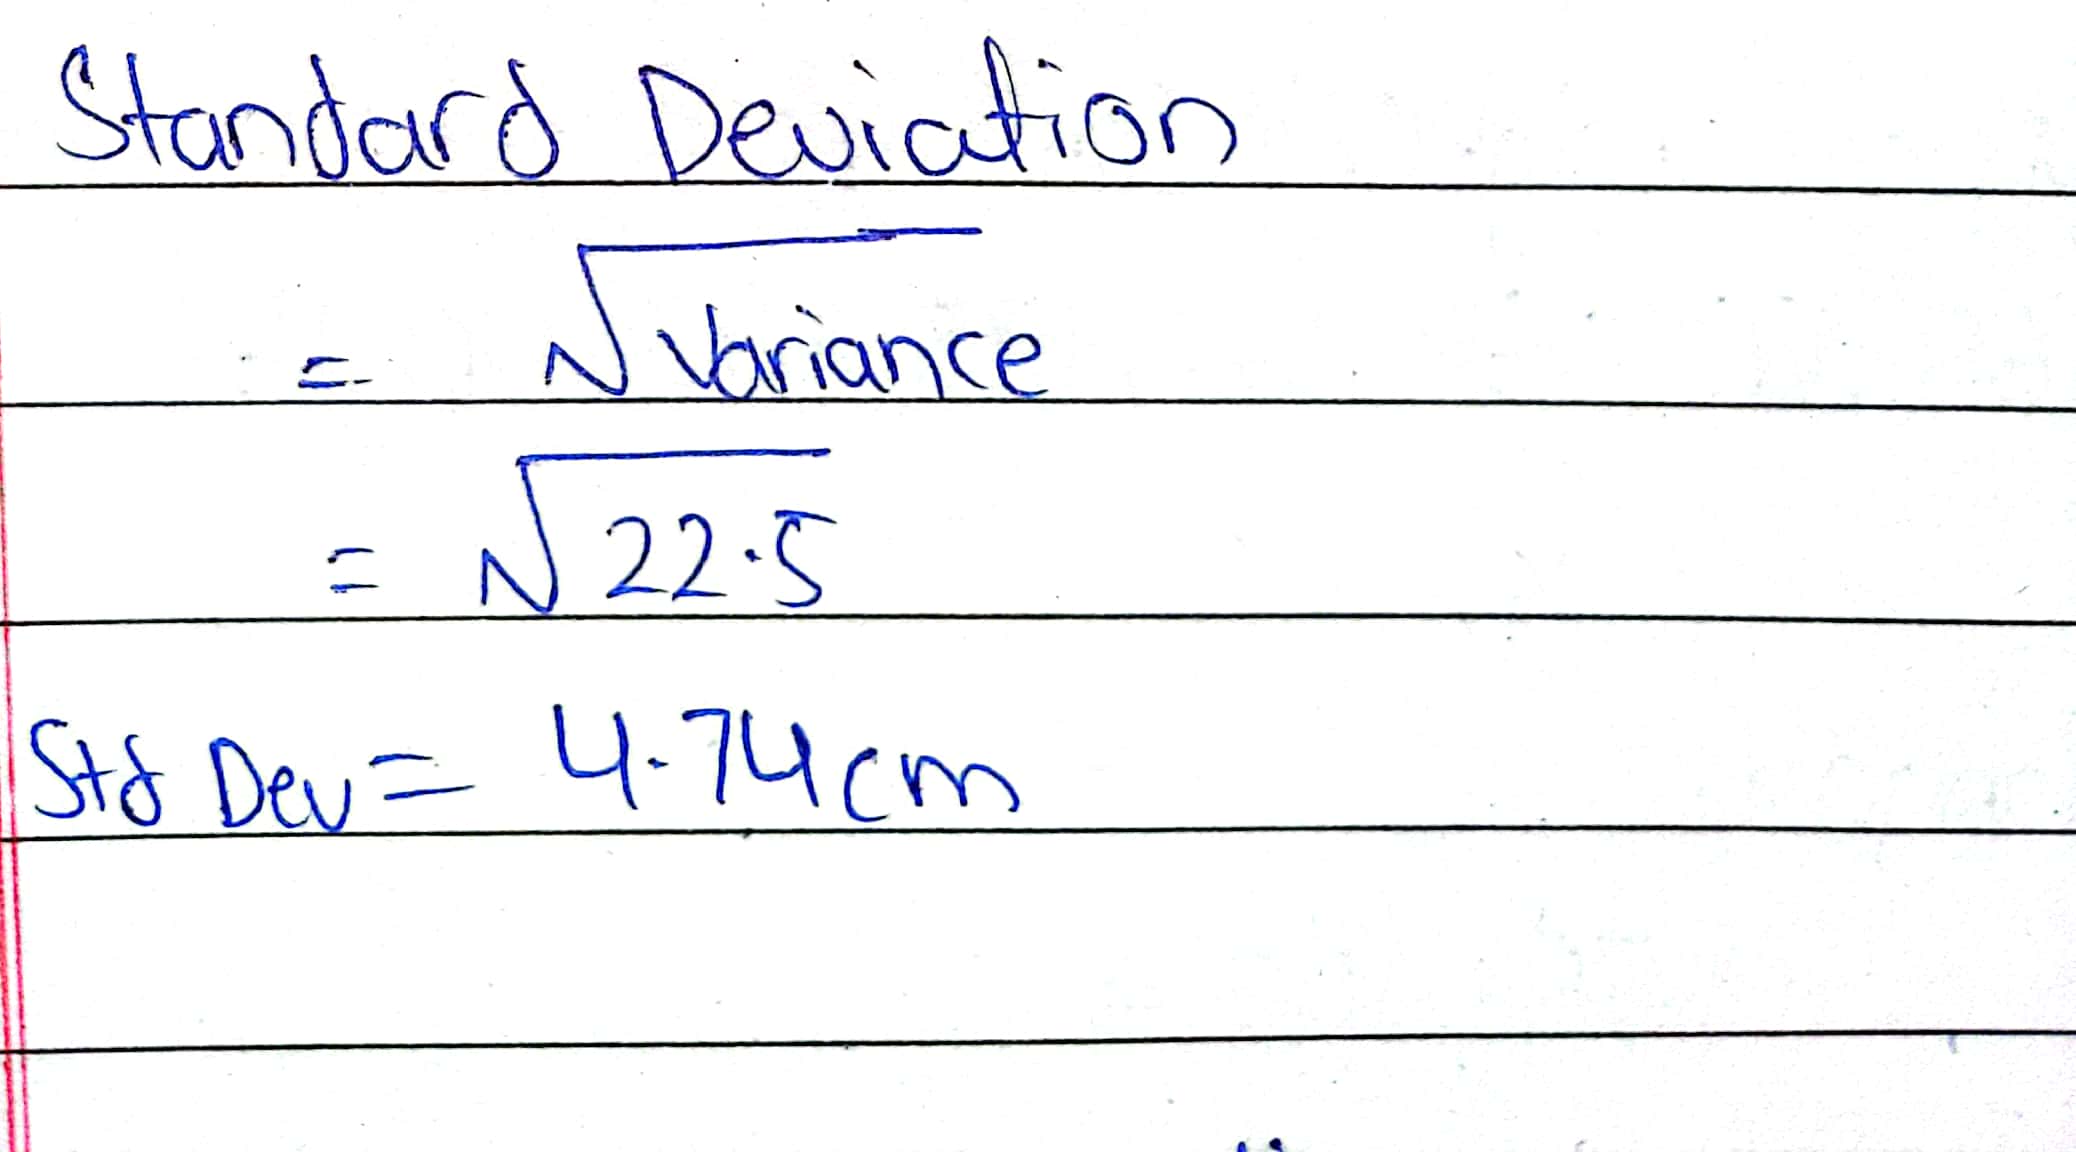 Standard Deviation
= √Variance
= √22.5
Std Dev = 4.74cm